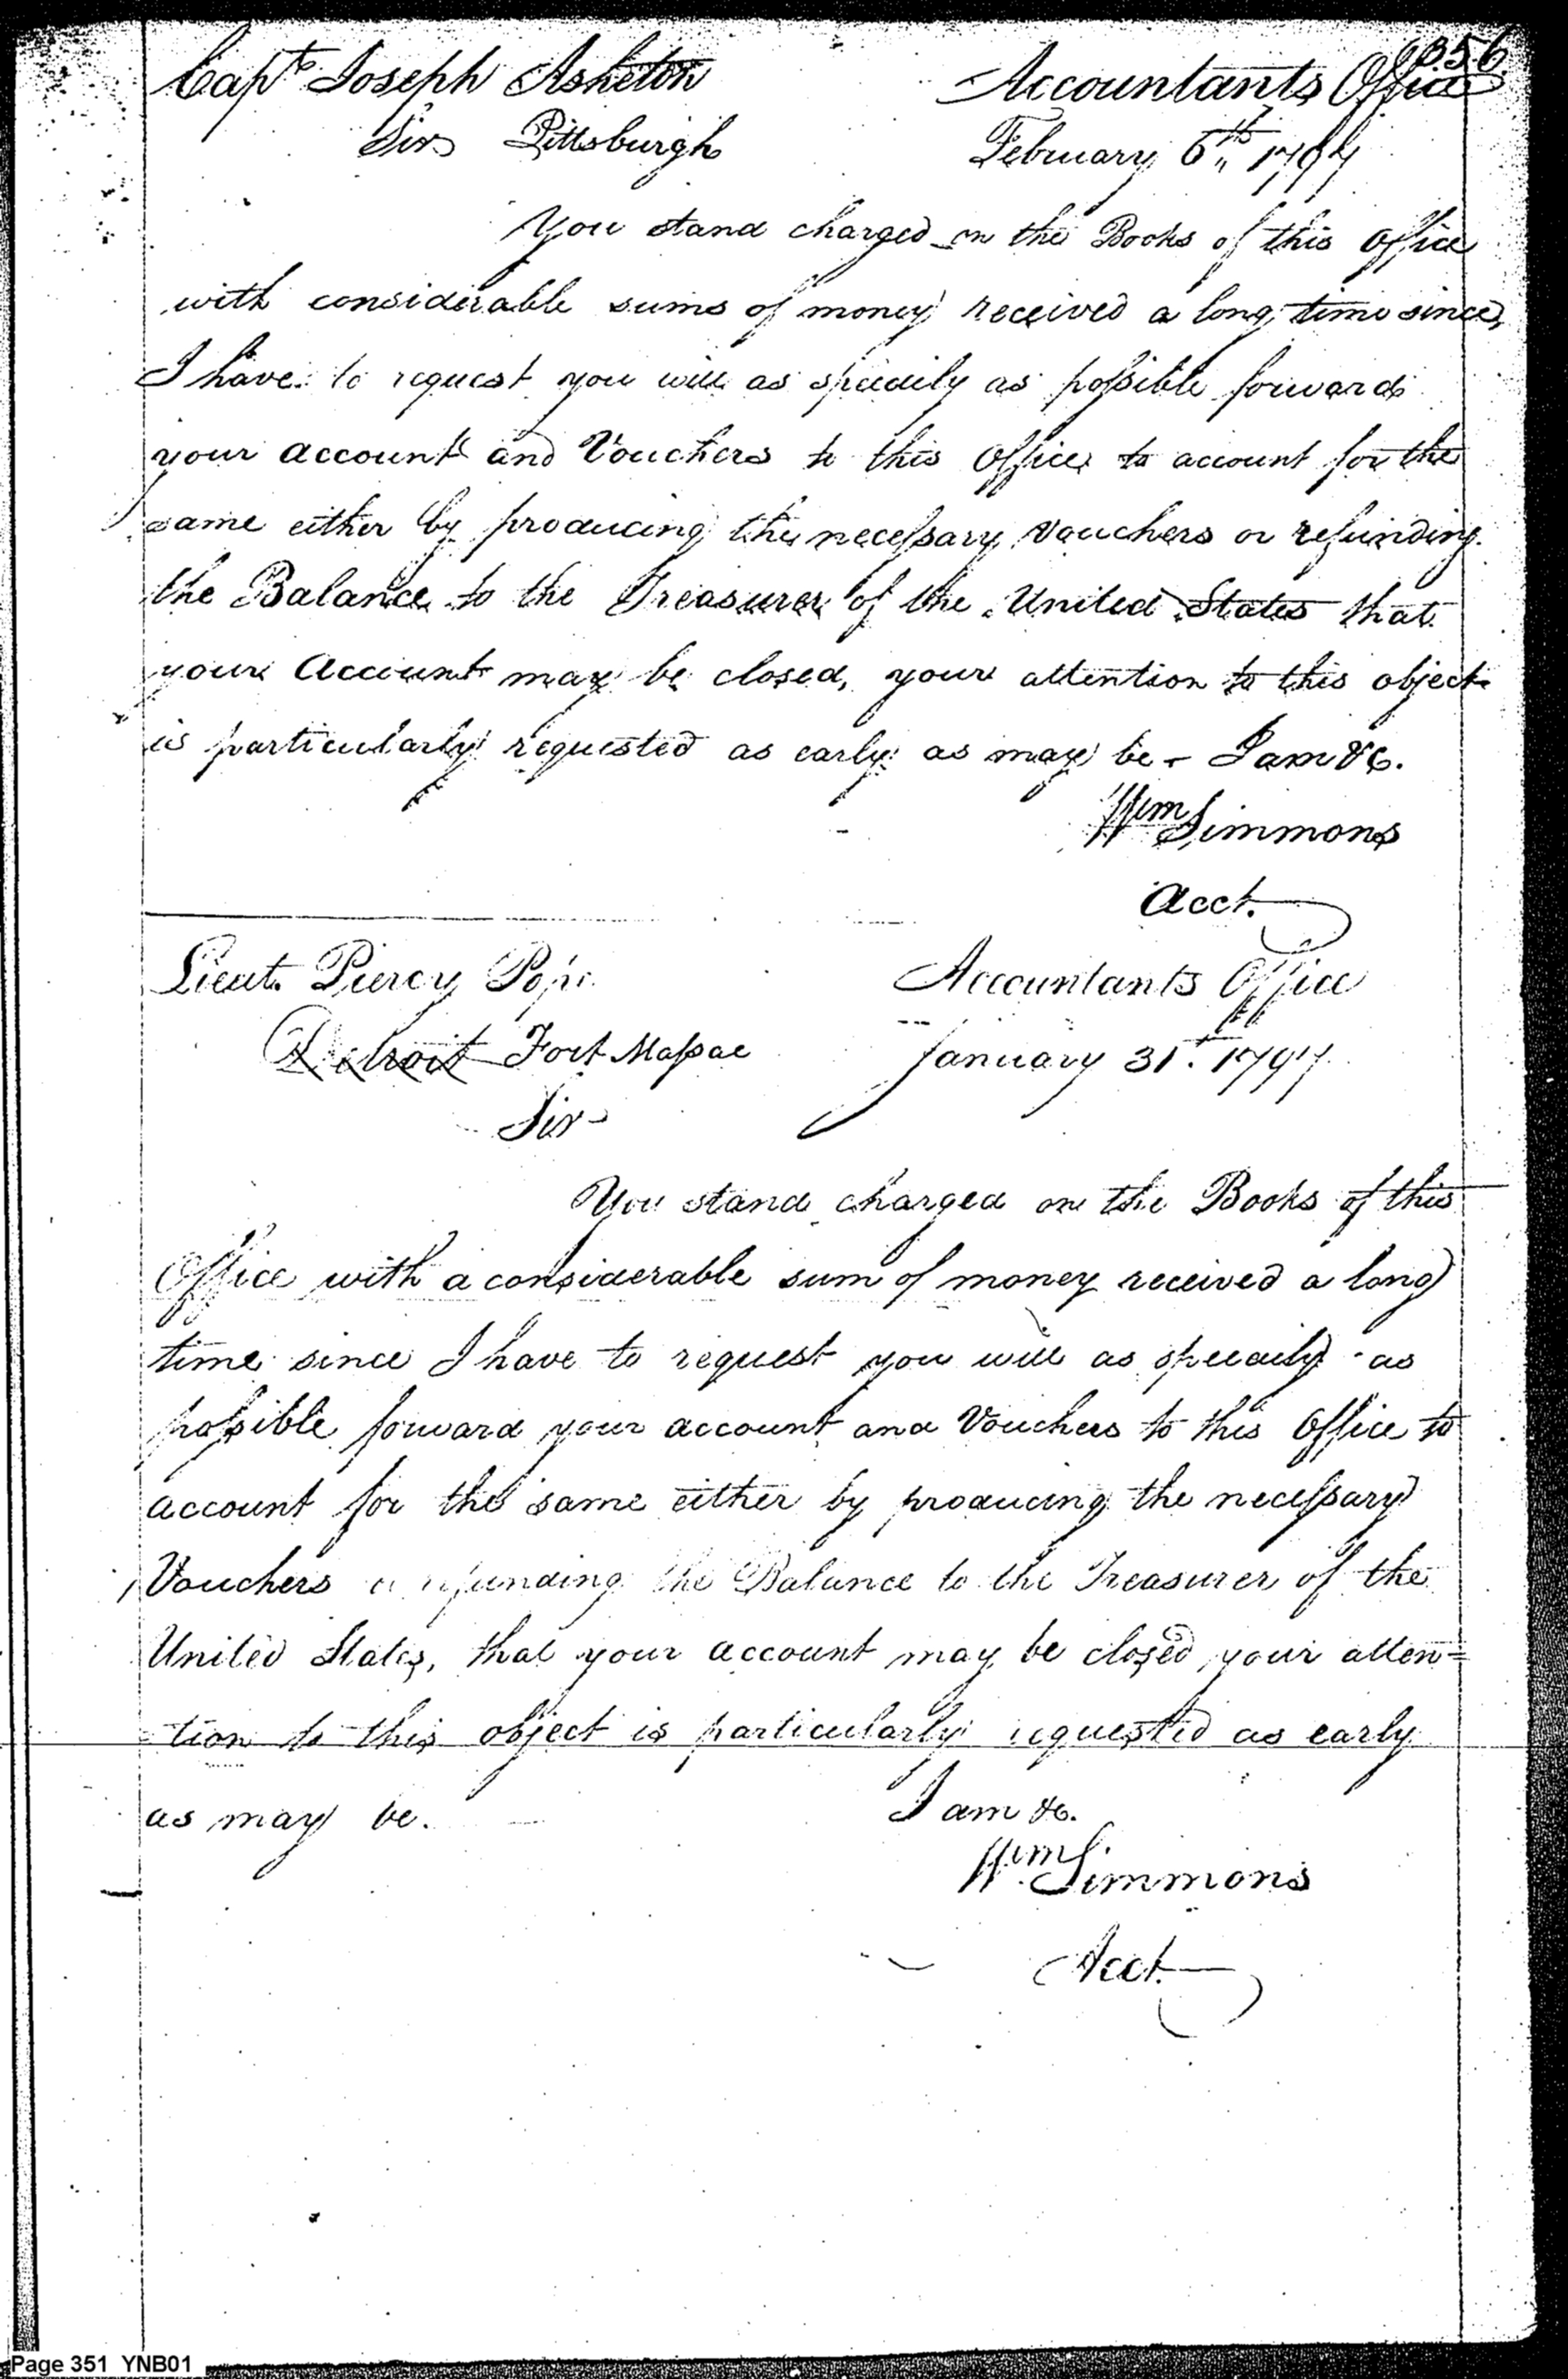 356
Capt. Joseph Asheton Accountants Office
Sir Pittsburgh February 6th 1797
You stand charged on the Books of this Office
with considerable sums of money received a long time since,
I have to request you will as speedily as possible forward
your account and Vouchers to this Office to account for the
same either by producing the necessary Vouchers or refunding
the Balance to the Treasurer of the United States that
your Account may be closed, your attention to this object
is particularly requested as early as may be - I am &c.
Wm Simmons
Acct.
Lieut. Piercy Pope Accountants Office
Detroit Fort Massac January 31st. 1797
Sir
You stand charged on the Books of this
Office with a considerable sum of money received a long
time since I have to request you will as speedily as
possible forward your account and Vouchers to this Office to
account for the same either by producing the necessary
Vouchers or refunding the Balance to the Treasurer of the
United States, that your account may be closed your atten=
=tion to this object is particularly requested as early
as may be. I am &c.
Wm Simmons
Acct.
Page 351 YNB01